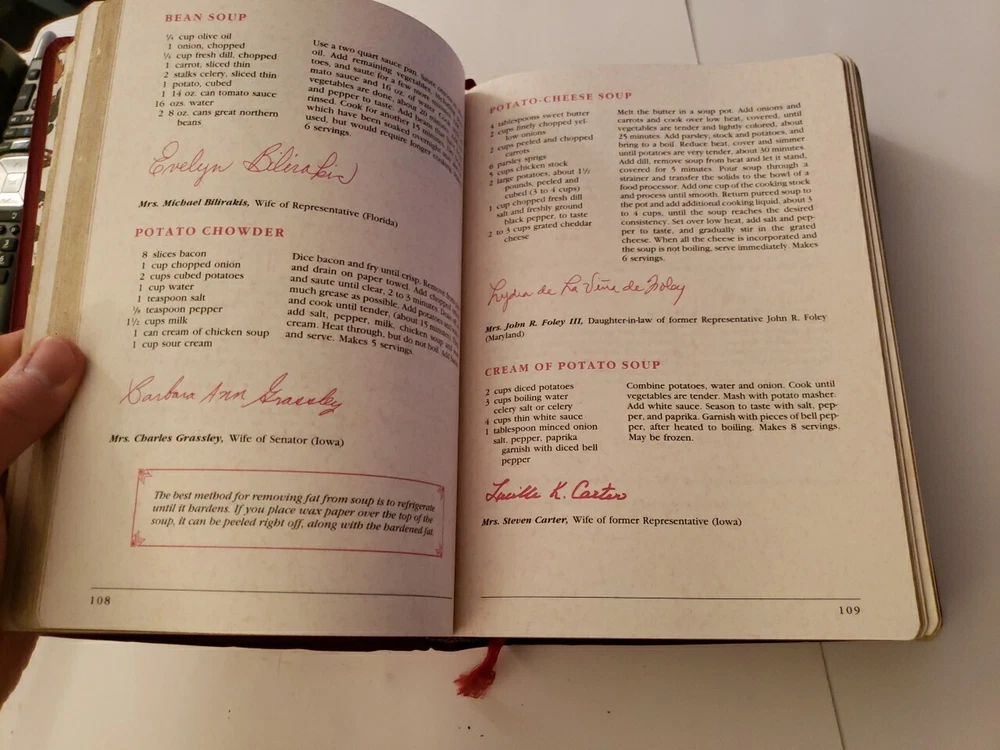 BEAN SOUP
¼ cup olive oil
1 onion, chopped
¼ cup fresh dill, chopped
1 carrot, sliced thin
2 stalks celery, sliced thin
1 potato, cubed
1 14 oz. can tomato sauce
16 ozs. water
2 8 oz. cans great northern
beans
Use a two quart sauce pan. Saute
oil. Add remaining vegetables,
toes, and saute for a few more
mato sauce and 16 oz. of water.
vegetables are done, about 20
and pepper to taste. Add beans
rinsed. Cook for another 15 minutes
which have been soaked overnight
used, but would require longer
6 servings.
Evelyn Bilirakis
Mrs. Michael Bilirakis, Wife of Representative (Florida)
POTATO CHOWDER
8 slices bacon
1 cup chopped onion
2 cups cubed potatoes
1 cup water
1 teaspoon salt
⅛ teaspoon pepper
1½ cups milk
1 can cream of chicken soup
1 cup sour cream
Dice bacon and fry until crisp. Remove
and drain on paper towel. Add chopped
and saute until clear, 2 to 3 minutes.
much grease as possible. Add potatoes
and cook until tender, (about 15 minutes)
add salt, pepper, milk, chicken soup and
cream. Heat through, but do not boil. Add
and serve. Makes 5 servings.
Barbara Ann Grassley
Mrs. Charles Grassley, Wife of Senator (Iowa)
The best method for removing fat from soup is to refrigerate
until it hardens. If you place wax paper over the top of the
soup, it can be peeled right off, along with the hardened fat.
108
POTATO-CHEESE SOUP
4 tablespoons sweet butter
2 cups finely chopped yel-
low onions
2 cups peeled and chopped
carrots
6 parsley sprigs
5 cups chicken stock
2 large potatoes, about 1½
pounds, peeled and
cubed (3 to 4 cups)
1 cup chopped fresh dill
salt and freshly ground
black pepper, to taste
2 to 3 cups grated cheddar
cheese
Melt the butter in a soup pot. Add onions and
carrots and cook over low heat, covered, until
vegetables are tender and lightly colored, about
25 minutes. Add parsley, stock and potatoes, and
bring to a boil. Reduce heat, cover and simmer
until potatoes are very tender, about 30 minutes
Add dill, remove soup from heat and let it stand,
covered for 5 minutes. Pour soup through a
strainer and transfer the solids to the bowl of a
food processor. Add one cup of the cooking stock
and process until smooth. Return pureed soup to
the pot and add additional cooking liquid, about 3
to 4 cups, until the soup reaches the desired
consistency. Set over low heat, add salt and pep-
per to taste, and gradually stir in the grated
cheese. When all the cheese is incorporated and
the soup is not boiling, serve immediately. Makes
6 servings.
Lydia de La Viña de Foley
Mrs. John R. Foley III, Daughter-in-law of former Representative John R. Foley
(Maryland)
CREAM OF POTATO SOUP
2 cups diced potatoes
3 cups boiling water
celery salt or celery
4 cups thin white sauce
1 tablespoon minced onion
salt, pepper, paprika
garnish with diced bell
pepper
Combine potatoes, water and onion. Cook until
vegetables are tender. Mash with potato masher.
Add white sauce. Season to taste with salt, pep-
per, and paprika. Garnish with pieces of bell pep-
per, after heated to boiling. Makes 8 servings.
May be frozen.
Lucille K. Carter
Mrs. Steven Carter, Wife of former Representative (Iowa)
109